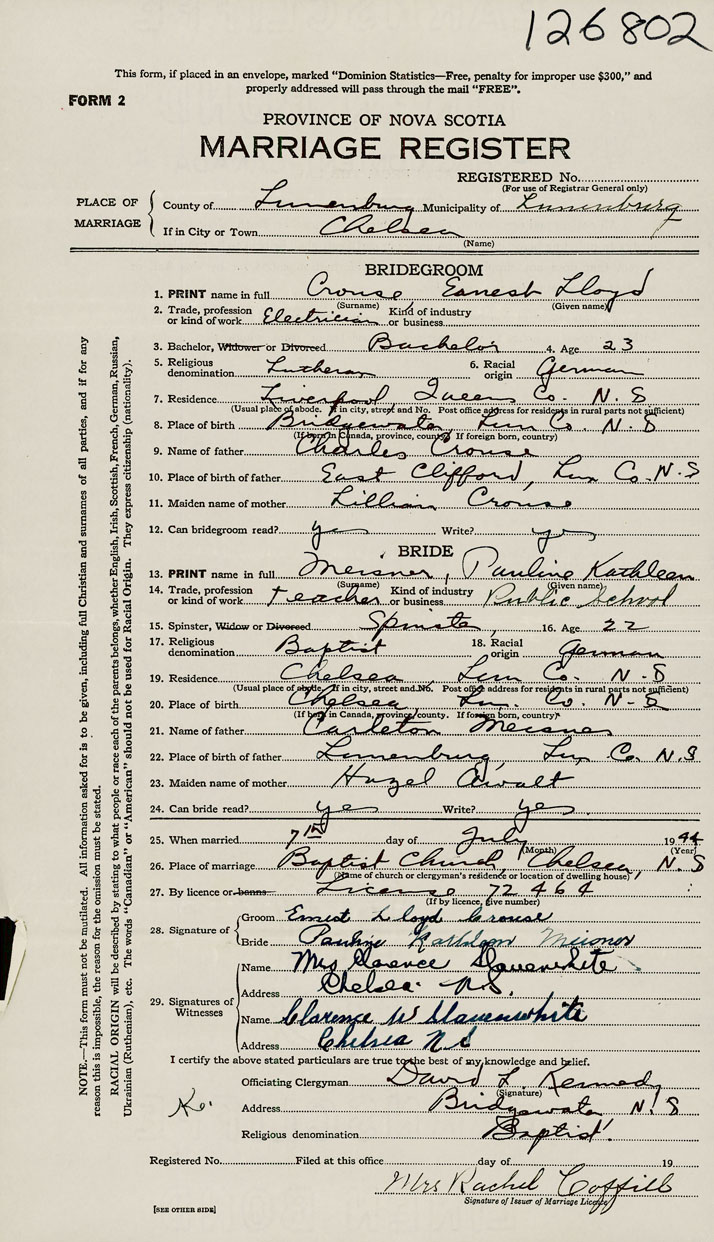 126802
This form, if placed in an envelope, marked "Dominion Statistics—Free, penalty for improper use $300," and
properly addressed will pass through the mail "FREE".
FORM 2
PROVINCE OF NOVA SCOTIA
MARRIAGE REGISTER
REGISTERED No.
(For use of Registrar General only)
PLACE OF MARRIAGE
County of Lunenburg Municipality of Lunenburg
If in City or Town Chelsea
(Name)
BRIDEGROOM
1. PRINT name in full Crouse, Earnest Lloyd
(Surname) (Given name)
2. Trade, profession or kind of work Electrician Kind of industry or business
3. Bachelor, Widower or Divorced Bachelor 4. Age 23
5. Religious denomination Lutheran 6. Racial origin German
7. Residence Liverpool, Queens Co. N.S
(Usual place of abode. If in city, street and No. Post office address for residents in rural parts not sufficient)
8. Place of birth Bridgewater, Lun Co. N.S
(If born in Canada, province, county. If foreign born, country)
9. Name of father Charles Crouse
10. Place of birth of father East Clifford, Lun Co. N.S
11. Maiden name of mother Lillian Crouse
12. Can bridegroom read? yes Write? yes
BRIDE
13. PRINT name in full Meisner, Pauline Kathleen
(Surname) (Given name)
14. Trade, profession or kind of work teacher Kind of industry or business Public School
15. Spinster, Widow or Divorced Spinster 16. Age 22
17. Religious denomination Baptist 18. Racial origin German
19. Residence Chelsea, Lun Co. N-S
(Usual place of abode. If in city, street and No. Post office address for residents in rural parts not sufficient)
20. Place of birth Chelsea, Lun. Co. N-S
(If born in Canada, province, county. If foreign born, country)
21. Name of father Carleton Meisner
22. Place of birth of father Lunenburg, Lun Co. N.S
23. Maiden name of mother Hazel Awalt
24. Can bride read? yes Write? yes
25. When married 7th day of July 1944
(Month) (Year)
26. Place of marriage Baptist Church, Chelsea, N.S
(Name of church or clergyman's residence or location of dwelling house)
27. By licence or banns License 72464
(If by licence, give number)
28. Signature of
Groom Ernest Lloyd Crouse
Bride Pauline Kathleen Meisner
29. Signatures of Witnesses
Name Mrs Clarence Slauenwhite
Address Chelsea N.S.
Name Clarence W Slauenwhite
Address Chelsea N S
I certify the above stated particulars are true to the best of my knowledge and belief.
Officiating Clergyman David L. Kennedy
(Signature)
Address Bridgewater N.S
Religious denomination Baptist
Registered No. Filed at this office day of 19
Mrs Rachel Coffill
Signature of Issuer of Marriage Licence
[SEE OTHER SIDE]
NOTE.—This form must not be mutilated. All information asked for is to be given, including full Christian and surnames of all parties, and if for any
reason this is impossible, the reason for the omission must be stated.
RACIAL ORIGIN will be described by stating to what people or race each of the parents belongs, whether English, Irish, Scottish, French, German, Russian,
Ukrainian (Ruthenian), etc. The words "Canadian" or "American" should not be used for Racial Origin. They express citizenship (nationality).